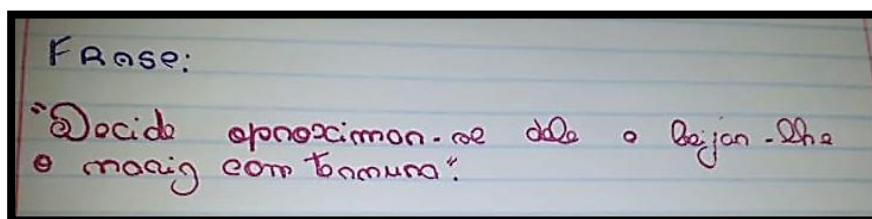 Frase:
"Decide aproximar-se dele e beijar-lhe
o nariz com ternura".